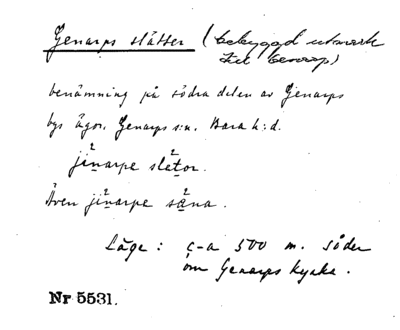 Genarps slätter (bebyggd utmark
till Genarp)
benämning på södra delen av Genarps
bys ägor. Genarps s:n. Bara h:d.
jinarpe sletor.
Även jinarpe säna.
Läge: c-a 500 m. söder
om Genarps kyrka.
Nr 5531.